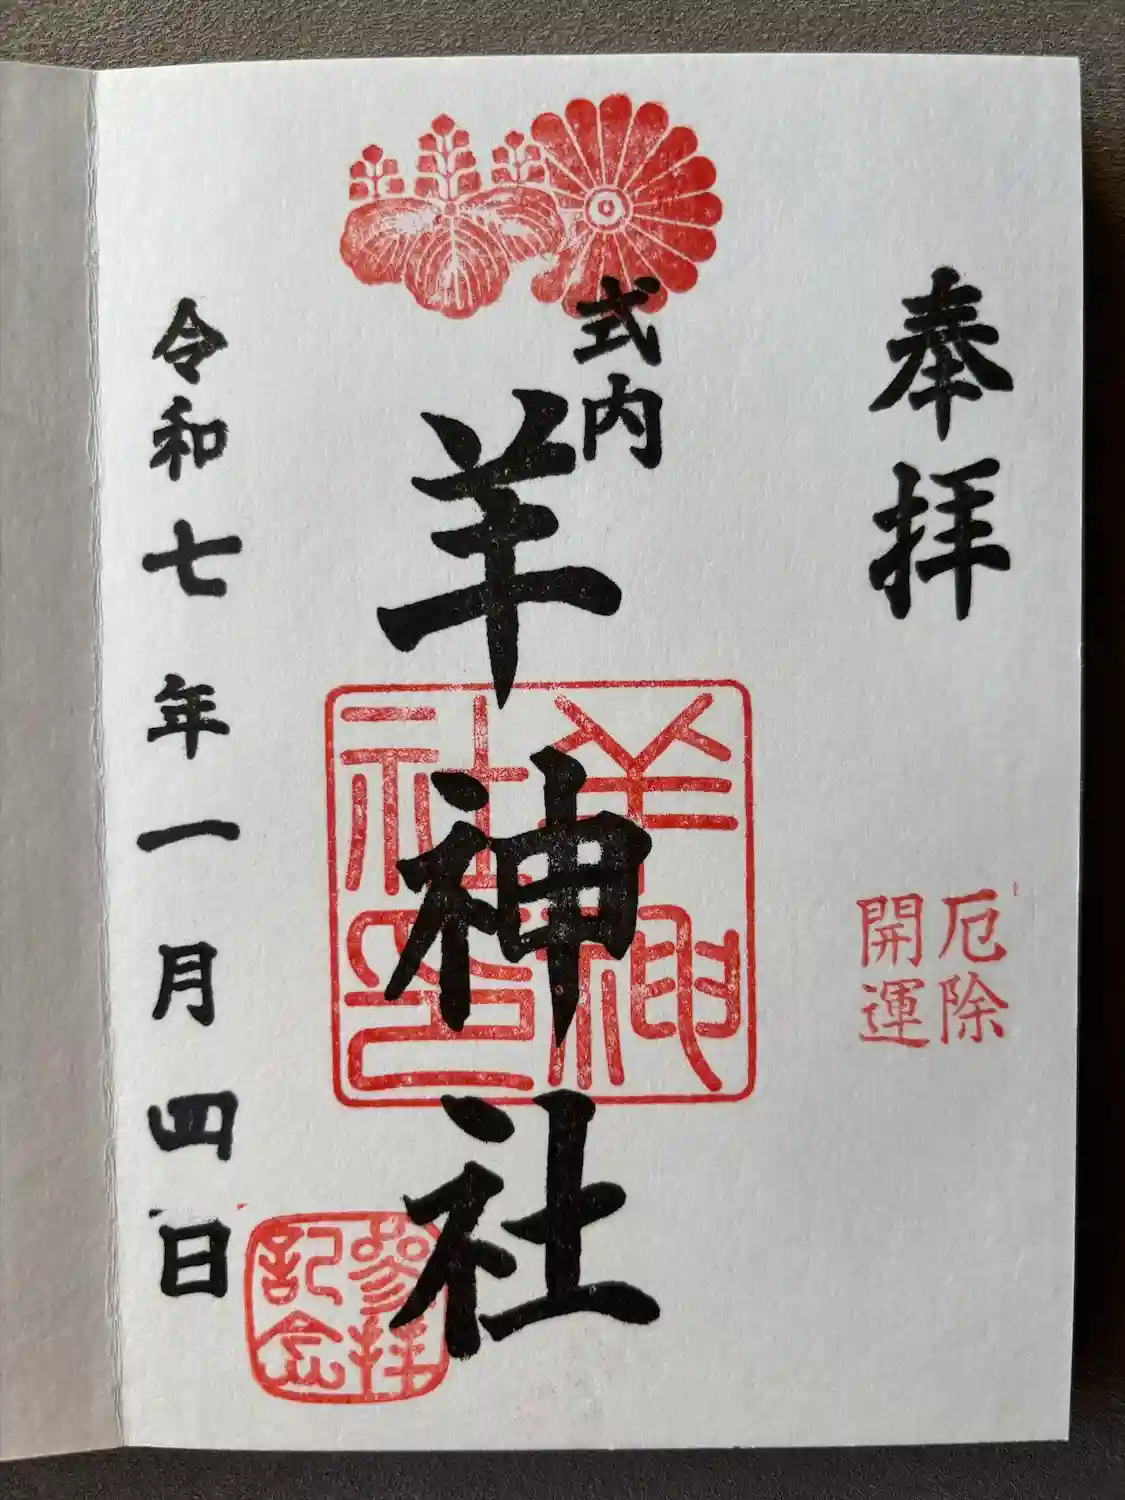 奉拝
厄除
開運
式内
羊神社
羊神社印
参拝記念
令和七年一月四日